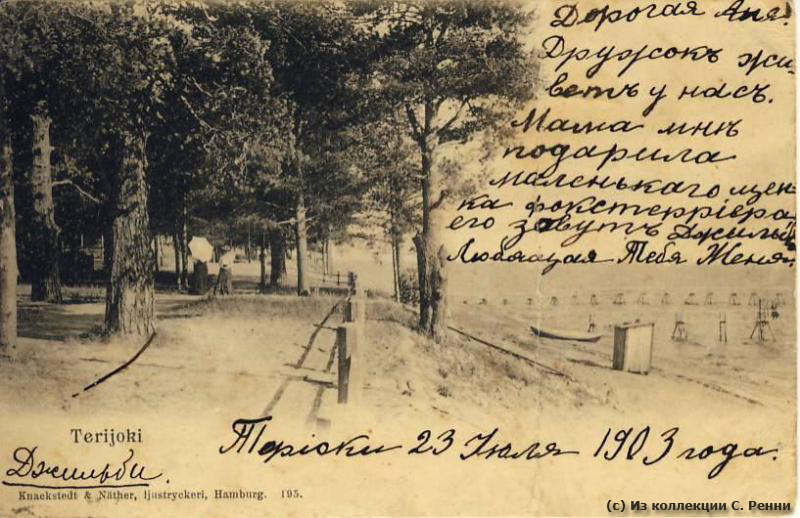 Дорогая Аня.
Дружокъ жи-
ветъ у насъ.
Мама мнѣ
подарила
маленькаго щен-
ка фокстерріера
его зовутъ Джильби
Любящая Тебя Женя.
Terijoki
Теріоки 23 Июля 1903 года.
Джильби.
Knackstedt & Näther, ljustryckeri, Hamburg. 195.
(c) Из коллекции С. Ренни